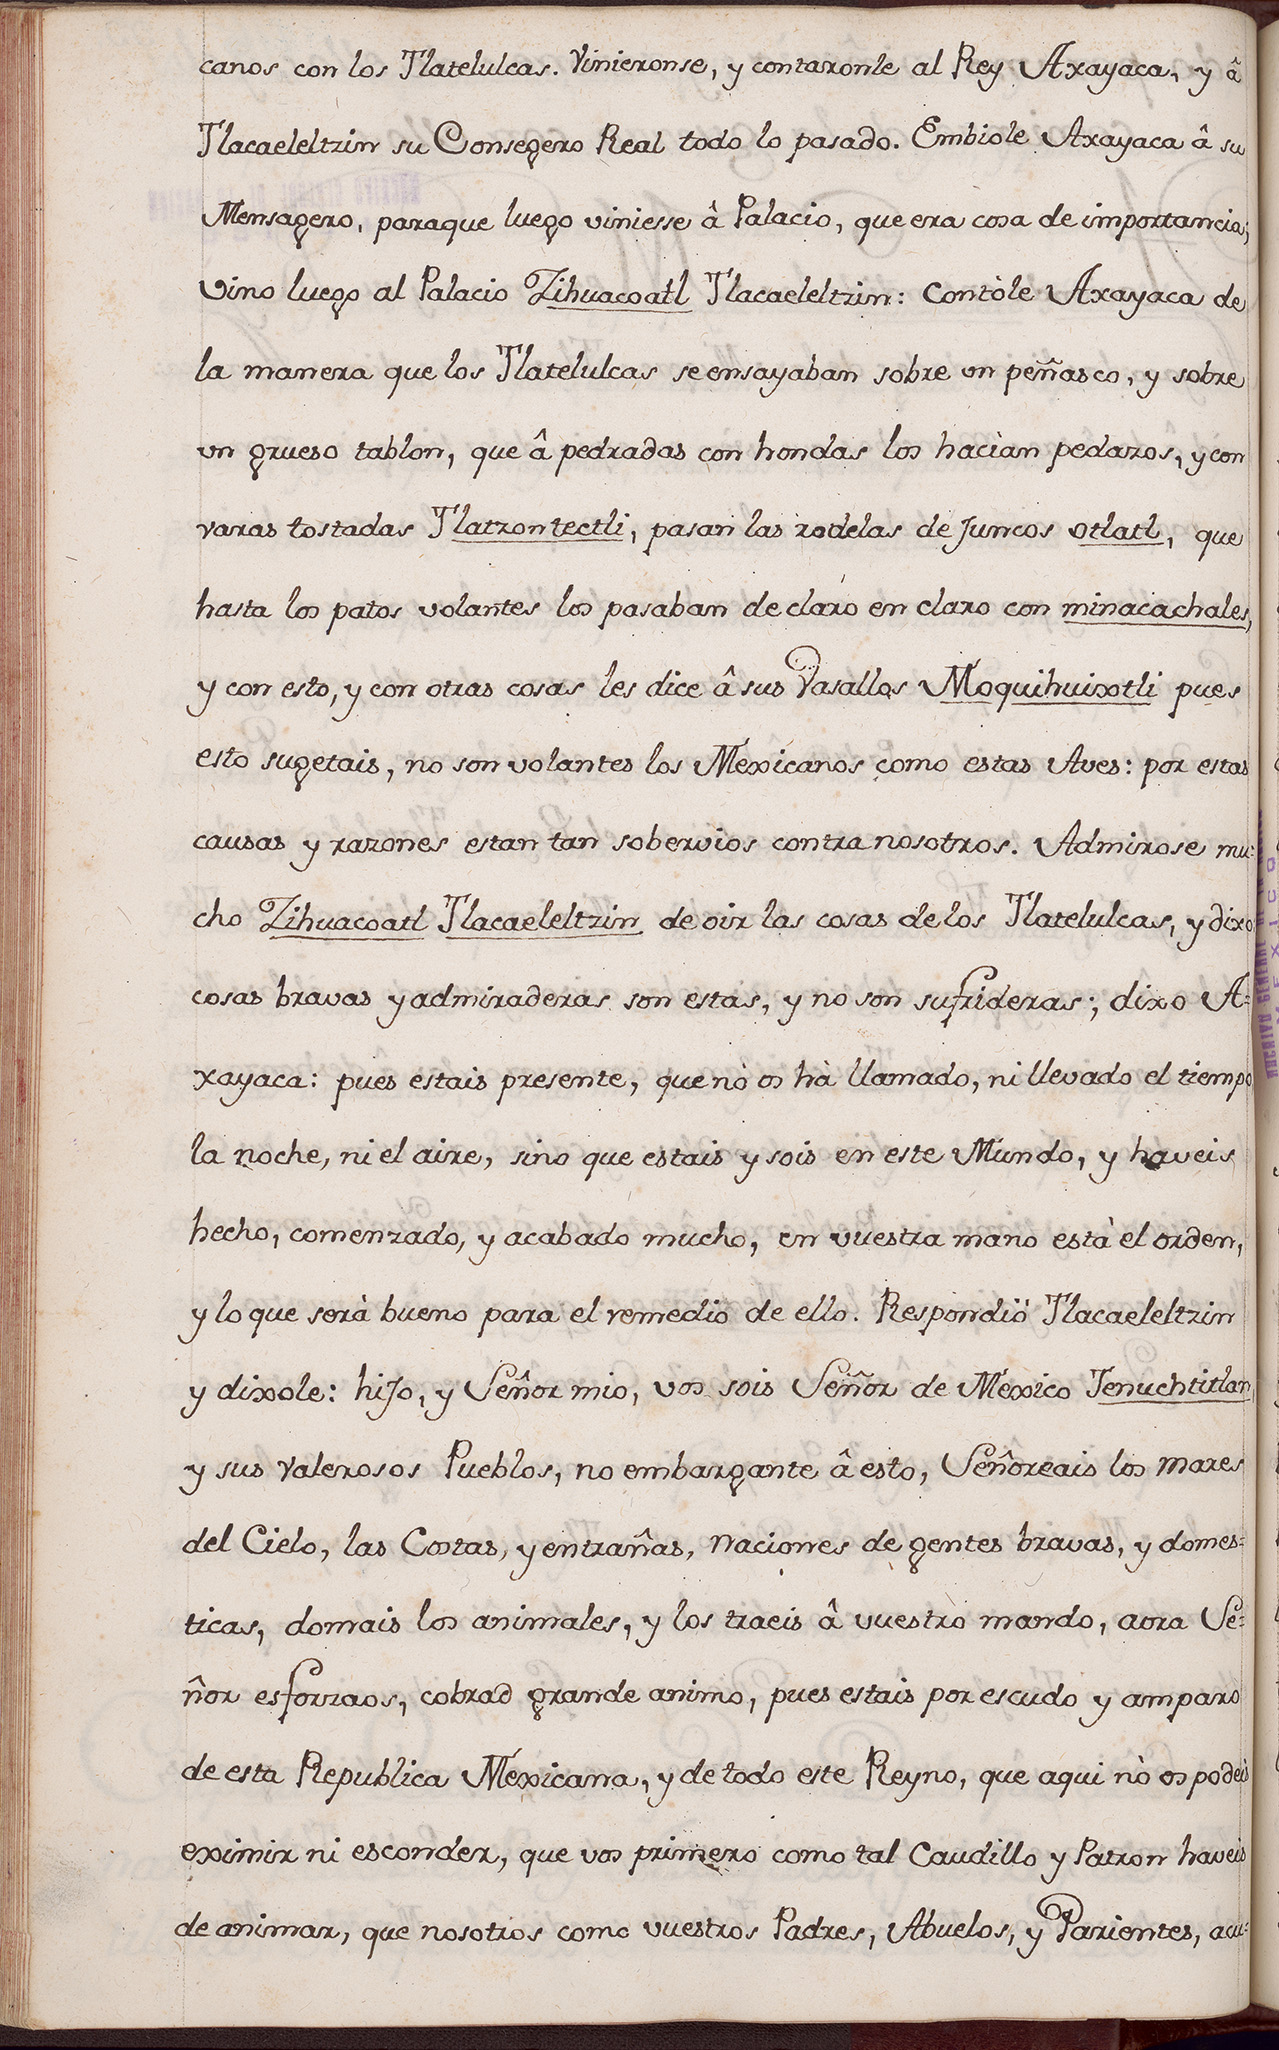 canos con los Tlatelulcas. Vinieronse, y contaronle al Rey Axayaca, y â
Tlacaeleltzin su Consegero Real todo lo pasado. Embiole Axayaca â su
Mensagero, paraque luego viniesse â Palacio, que era cosa de importancia;
vino luego al Palacio Zihuacoatl Tlacaeleltzin: Contòle Axayaca de
la manera que los Tlatelulcas se ensayaban sobre un peñasco, y sobre
un grueso tablon, que â pedradas con hondas los hacian pedazos, y con
varas tostadas Tlatzontectli, pasan las rodelas de Juncos otlatl, que
hasta los patos volantes los pasaban de claro en claro con minacachales,
y con esto, y con otras cosas les dice â sus Vasallos Moquihuixotli pues
esto sugetais, no son volantes los Mexicanos como estas Aves: por estas
causas y razones estan tan sobervios contra nosotros. Admirose mu=
cho Zihuacoatl Tlacaeleltzin de oir las cosas de los Tlatelulcas, y dixo
cosas bravas y admiraderas son estas, y no son sufrideras; dixo A=
xayaca: pues estais presente, que nò os hà llamado, ni llevado el tiempo
la noche, ni el aire, sino que estais y sois en este Mundo, y haveis
hecho, comenzado, y acabado mucho, en vuestra mano està el orden,
y lo que serà bueno para el remedio de ello. Respondiò Tlacaeleltzin
y dixole: hiJo, y Señor mio, vos sois Señor de Mexico Tenuchtitlan
y sus Valerosos Pueblos, no embargante â esto, Señoreais los mares
del Cielo, las Costas, y entrañas, Naciones de gentes bravas, y domes=
ticas, domais los animales, y los traeis â vuestro mando, aora Se=
ñor esforzaos, cobrad grande animo, pues estais por escudo y amparo
de esta Republica Mexicana, y de todo este Reyno, que aqui nò os podeis
eximir ni esconder, que vos primero como tal Caudillo y Patron haveis
de animar, que nosotros como vuestros Padres, Abuelos, y Parientes, acu=